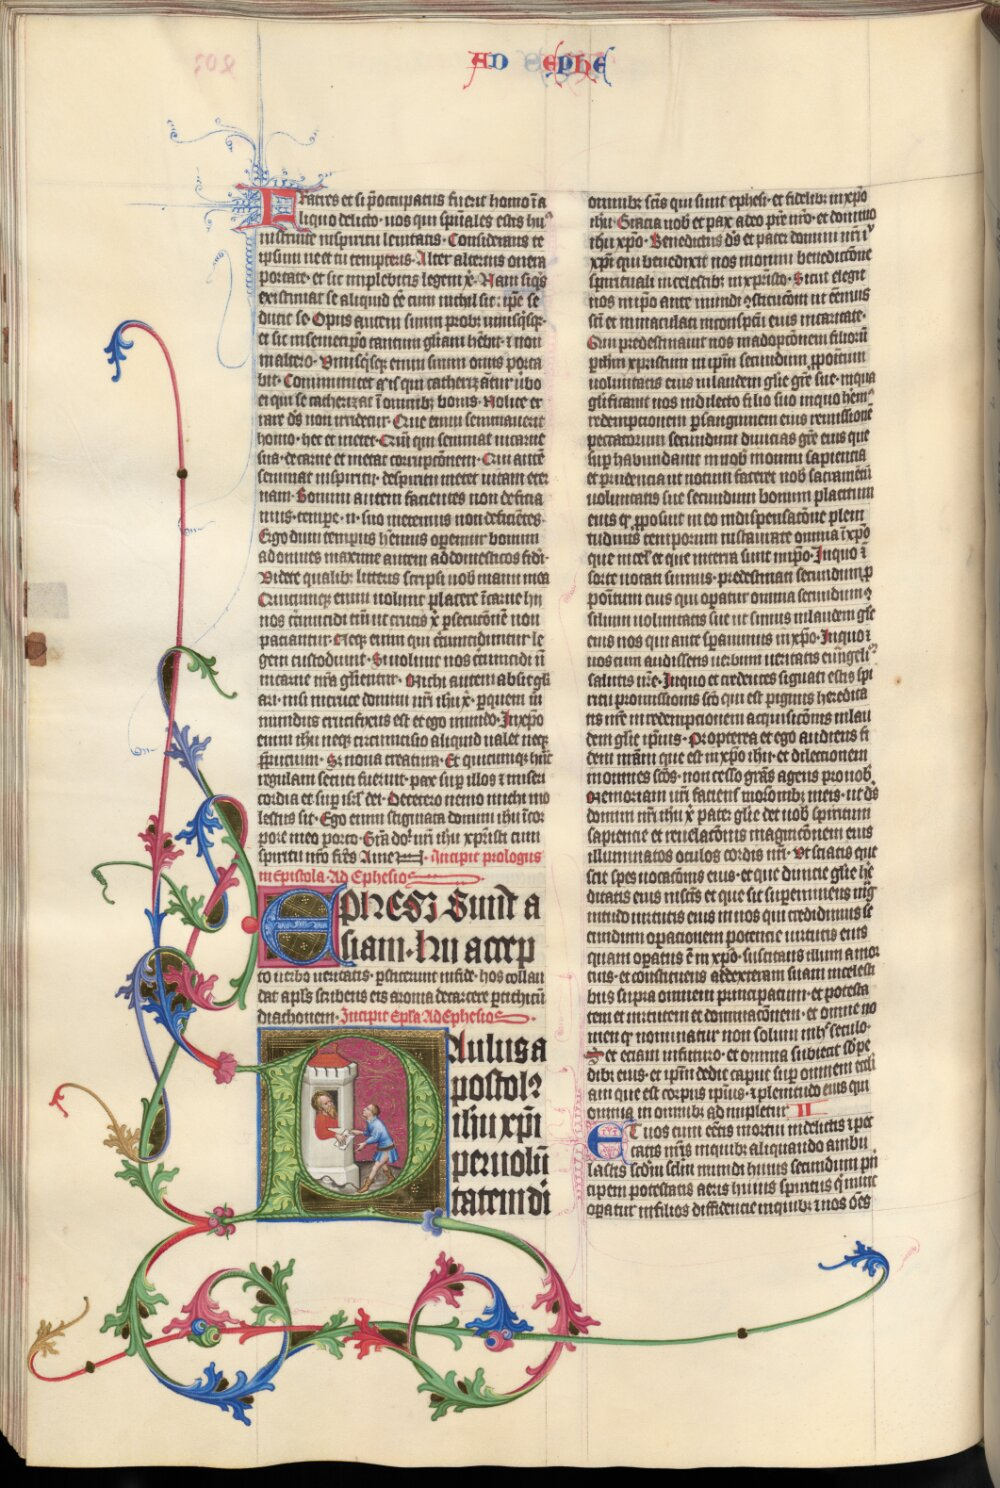 AD EPHE
Fratres et si p̄occupatus fuerit homo ī a
liquo delicto· uos qui sp̄ūales estis hu
iusmodi in spiritu lenitatis· Considerans te
ipsum ne et tu tempteris· Alter alterius onera
portate· et sic implebitis legem x̄· Nam si q̄s
existimat se aliquid eē cum nichil sit· ip̄e se
ducit se· Opus autem suum probet unusq̄sq̄·
et sic in semetip̄o tantum gl̄iam hēbit· ⁊ non
in altero· Unusq̄sq̄ enim suum onus porta
bit· Communicet is qui catherizatur ūbo
ei qui se catherizat ī omnib; bonis· Nolite er
rare d̄s non irridetur· Que enim seminauerit
homo· hec et metet· Qm̄ qui seminat in carne
sua· de carne et metet corrupc̄onem· Qui autē
seminat in spiritu· de spiritu metet uitam eter
nam· Bonum autem facientes non deficia
mus· tempore· n̄· suo metemus non deficiētes·
Ergo dum tempus hēmus operemur bonum
ad omnes maxime autem ad domesticos fidei·
Videte qualib; litteris scripsi uob̄ manu mea
Quicunq̄ enim uolunt placere ī carne hii
uos circūcidi tm̄ ut crucis x̄ p̄secuc̄onē non
paciantur· Neq̄ enim qui circūciduntur le
gem custodiunt· S; uolunt uos circūcidi ut
in carne ur̄a gl̄ientur· Michi autem absit gl̄i
ari· nisi in cruce domini nr̄i ihū x̄· p̄ quem m̄
mundus crucifixus est et ego mundo· In xp̄o
enim ihū neq̄ circumcisio aliquid ualet neq̄
p̄pucium· S; noua creatura· Et quicumq̄ hāc
regulam secuti fuerint· pax sup̄ illos ⁊ miseri
cordia et sup̄ isrl̄ dei· De cetero nemo michi mo
lestus sit· Ego enim stigmata domini ihū ī cor
pore meo porto· Grā dn̄i nr̄i ihū xp̄isti cum
spiritu ur̄o fr̄es Amen· Incipit prologus
in Epistola· Ad Ephesios
EPHESI Sunt a
siani· hii accep
to uerbo ueritatis· p̄stiterunt in fide· hos collau
dat ap̄ls scribens eis a roma de carcere per tichicū
dyachonem· Incipit Epl̄a Ad Ephesios
Paulus a
postol⁊
ihū xp̄i
per uolū
tatem di
omnib; sc̄is qui sunt ephesi· et fidelib; in xp̄o
ihū· Gracia uob̄ et pax a deo p̄re nr̄o· et domino
ihū xp̄o· Benedictus d̄s et pater domini nr̄i i
xp̄i qui benedixit nos in omni benedictōne
spirituali in celestib; in xp̄isto· Sicut elegit
nos in ip̄o ante mundi ⁊stitucōm ut eēmus
sc̄i et inmaculati in conspc̄u eius in caritate·
Qui predestinauit nos in adopc̄onem filiorū
p̄ ihm̄ xp̄istum in ip̄m secundum p̄positum
uoluntatis eius in laudem gl̄ie gr̄e sue· in qua
gl̄ificauit nos in dilecto filio suo in quo hēm
redempcionem p̄ sanguinem eius remissionē
peccatorum secundum diuicias gr̄e eius que
sup̄habundauit in nob̄ in omni sapiencia
et prudencia ut notum faceret nob̄ sacramētū
uoluntatis sue secundum bonum placitum
eius q̄ p̄posuit in eo in dispensatōne pleni
tudinis temporum instaurare omnia ī xp̄o
que in cel̄ et que in terra sunt in ip̄o· In quo ⁊
sorte uocati sumus· predestinati secundum p̄
positum eius qui op̄atur omnia secundum ⁊
silium uoluntatis sue ut simus in laudem gl̄ie
eius nos qui ante sp̄auimus in xp̄o· In quo ⁊
uos cum audissetis uerbum ueritatis eūngeli
salutis ur̄e· In quo et credentes signati estis spi
ritu promissionis sc̄o qui est pignus heredita
tis nr̄e in redempcionem acquisitōnis in lau
dem gl̄ie ip̄ius· Propterea et ego audiens fi
dem ur̄am que est in xp̄o ihū· et dilectionem
in omnes sc̄os· non cesso gr̄as agens pro uob̄
Memoriam ur̄i faciens in oronib; meis· ut d̄s
domini nr̄i ihū x̄ pater gl̄ie det uob̄ spiritum
sapiencie et reuelatōnis in agnitōnem eius
illuminatos oculos cordis ur̄i· Ut sciatis que
sit spes uocatōnis eius· et que diuicie gl̄ie hē
ditatis eius in sc̄is· et que sit superminens mag
nitudo uirtutis eius in nos qui credidimus se
cundum op̄acionem potencie uirtutis eius
quam op̄atus ē in xp̄o· suscitans illum a mor
tuis· et constituens ad dexteram suam in celesti
bus supra omnem principatum· et potesta
tem et uirtutem et dominatōnem· et omne no
men q̄ nominatur non solum in h̄ seculo·
Set eciam in futuro· et omnia subiecit sb̄ pe
dib; eius· et ip̄m dedit caput sup̄ omnem eccl̄i
am que est corpus ip̄ius· ⁊ plenitudo eius qui
omnia in omnib; adimpletur· II
Et uos cum eētis mortui in delictis ⁊ pec
catis ur̄is in quib; aliquando ambu
lastis sc̄dm sc̄lm mundi huius secundum pn̄
cipem potestatis aeris huius spiritus q̄ nunc
op̄atur in filios diffidencie in quib; ⁊ nos ōēs